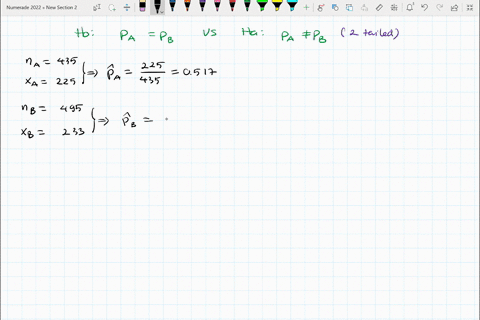 Numerade 2022 » New Section 2
Ho: PA = PB vs Ha: PA ≠ PB (2 tailed)
nA = 435
xA = 225
⇒ p̂A = 225/435 = 0.517
nB = 495
xB = 233
⇒ p̂B =